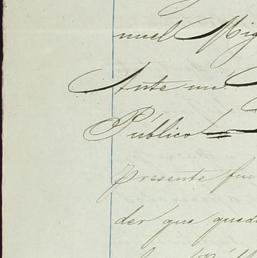 nuel Mig
Ante mi
Público
presente fue
der que qued